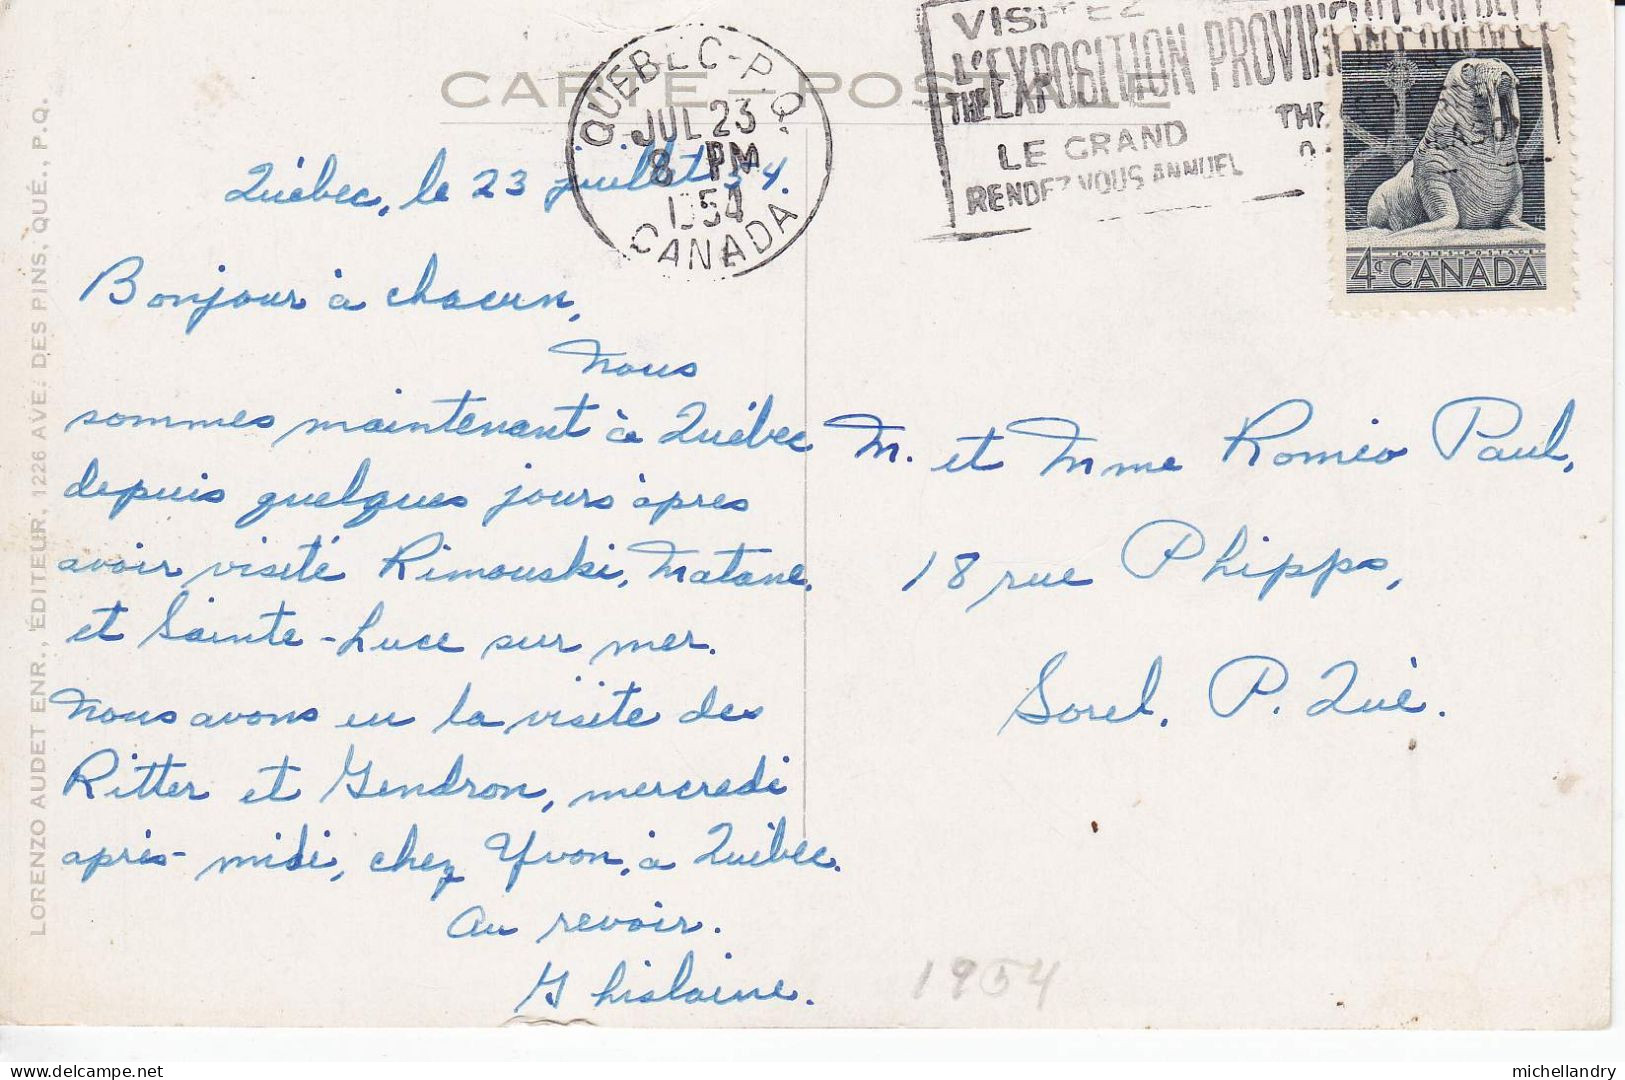 CARTE POSTALE
QUEBEC-P.Q.
JUL 23
8 PM
1954
CANADA
VISITEZ
L'EXPOSITION PROVINCIALE
THE EXP
THE
LE GRAND
RENDEZ VOUS ANNUEL
POSTES-POSTAGE
4¢ CANADA
Québec, le 23 juillet 54.
Bonjour à chacun,
Nous
sommes maintenant à Québec
depuis quelques jours àpres
avoir visité Rimouski, Matane,
et Sainte-Luce sur mer.
Nous avons eu la visite des
Ritter et Gendron, mercredi
après-midi, chez Yvon, à Québec.
Au revoir.
Ghislaine.
M. et Mme Roméo Paul,
18 rue Phipps,
Sorel, P. Qué.
1954
LORENZO AUDET ENR., ÉDITEUR, 1226 AVE. DES PINS, QUÉ., P.Q.
michellandry